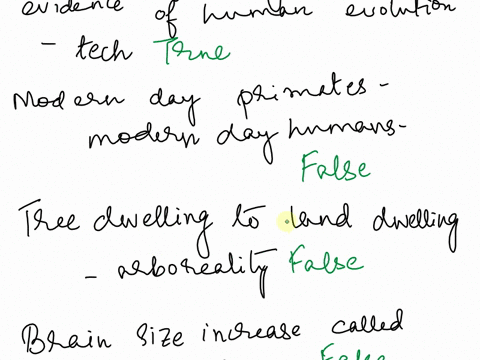 evidence of human evolution
- tech True
Modern day primates -
modern day humans-
False
Tree dwelling to land dwelling
- arboreality False
Brain size increase called
False